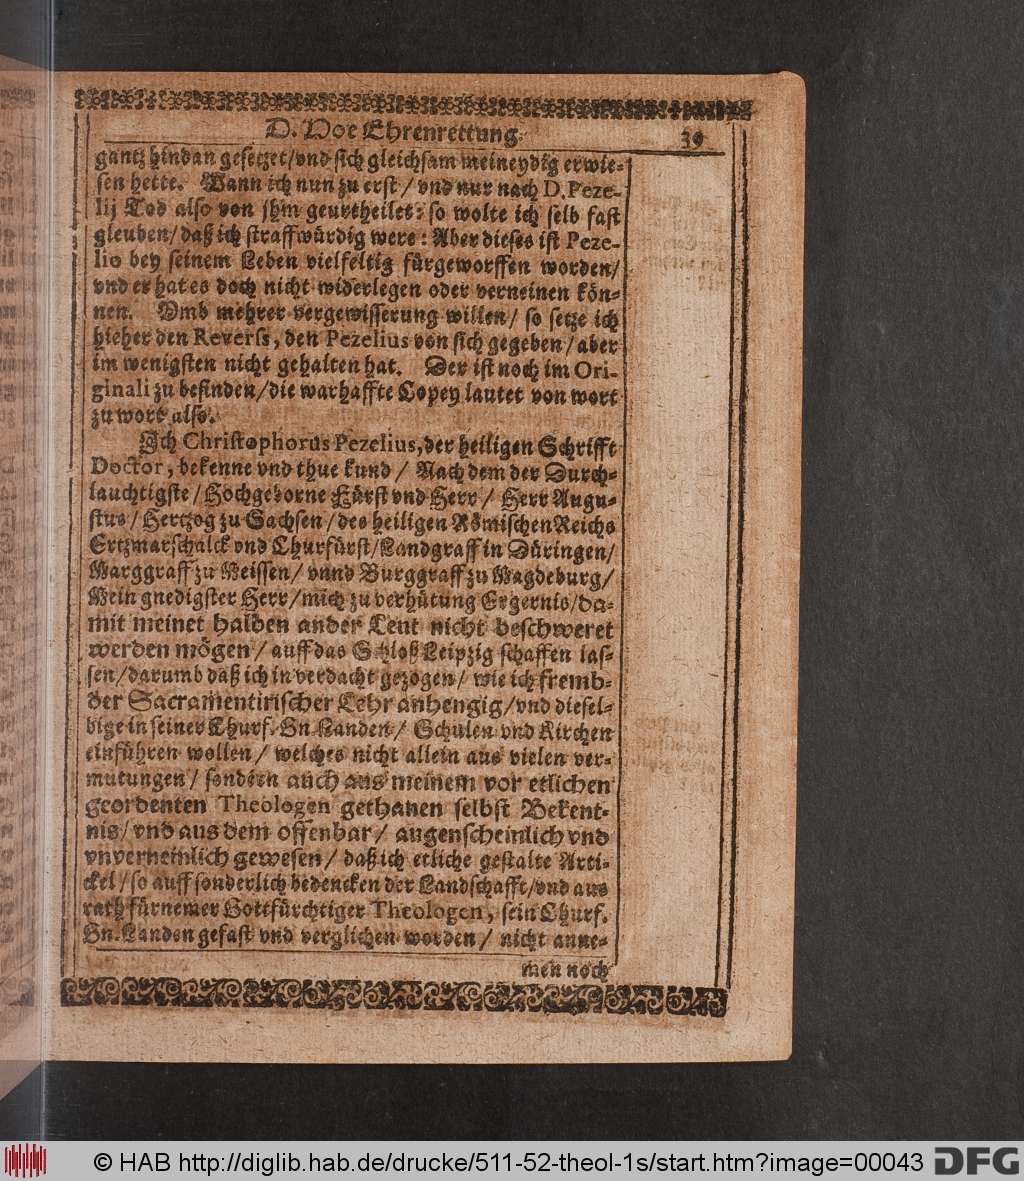 D. Hoe Ehrenrettung. 39
gantz hindan gesetzet/vnd sich gleichsam meineydig erwie-
sen hette. Wann ich nun zu erst/ vnd nur nach D. Peze-
lij Tod also von jhm geurtheilet: so wolte ich selb fast
gleuben/ daß ich straffwürdig were: Aber dieses ist Peze-
lio bey seinem Leben vielfeltig fürgeworffen worden/
vnd er hat es doch nicht widerlegen oder verneinen kön-
nen. Vmb mehrer vergewisserung willen/ so setze ich
hieher den Reverss, den Pezelius von sich gegeben/ aber
im wenigsten nicht gehalten hat. Der ist noch im Ori-
ginali zu befinden/die warhaffte Copey lautet von wort
zu wort also.
Ich Christophorus Pezelius, der heiligen Schrifft
Doctor, bekenne vnd thue kund/ Nach dem der Durch-
lauchtigste/ Hochgeborne Fürst vnd Herr/ Herr Augu-
stus/ Hertzog zu Sachsen/ des heiligen Römischen Reichs
Ertzmarschalck vnd Churfürst/Landgraff in Düringen/
Marggraff zu Meissen/ vnnd Burggraff zu Magdeburg/
Mein gnedigster Herr/mich zu verhütung Ergernis/da-
mit meinet halben ander Leut nicht beschweret
werden mögen/ auff das Schloß Leipzig schaffen las-
sen/darumb daß ich in verdacht gezogen/ wie ich fremb-
der Sacramentirischer Lehr anhengig/vnd diesel-
bige in seiner Churf. Gn. Landen/ Schulen vnd Kirchen
einführen wollen/ welches nicht allein aus vielen ver-
mutungen/ sondern auch aus meinem vor etlichen
geordenten Theologen gethanen selbst Bekent-
nis/ vnd aus dem offenbar/ augenscheinlich vnd
vnverneinlich gewesen/ daß ich etliche gestalte Arti-
ckel/so auff sonderlich bedencken der Landschafft/vnd aus
rath fürnemer Gottfürchtiger Theologen, sein Churf.
Gn. Landen gefast vnd verglichen worden/ nicht anne-
men noch
© HAB http://diglib.hab.de/drucke/511-52-theol-1s/start.htm?image=00043 DFG